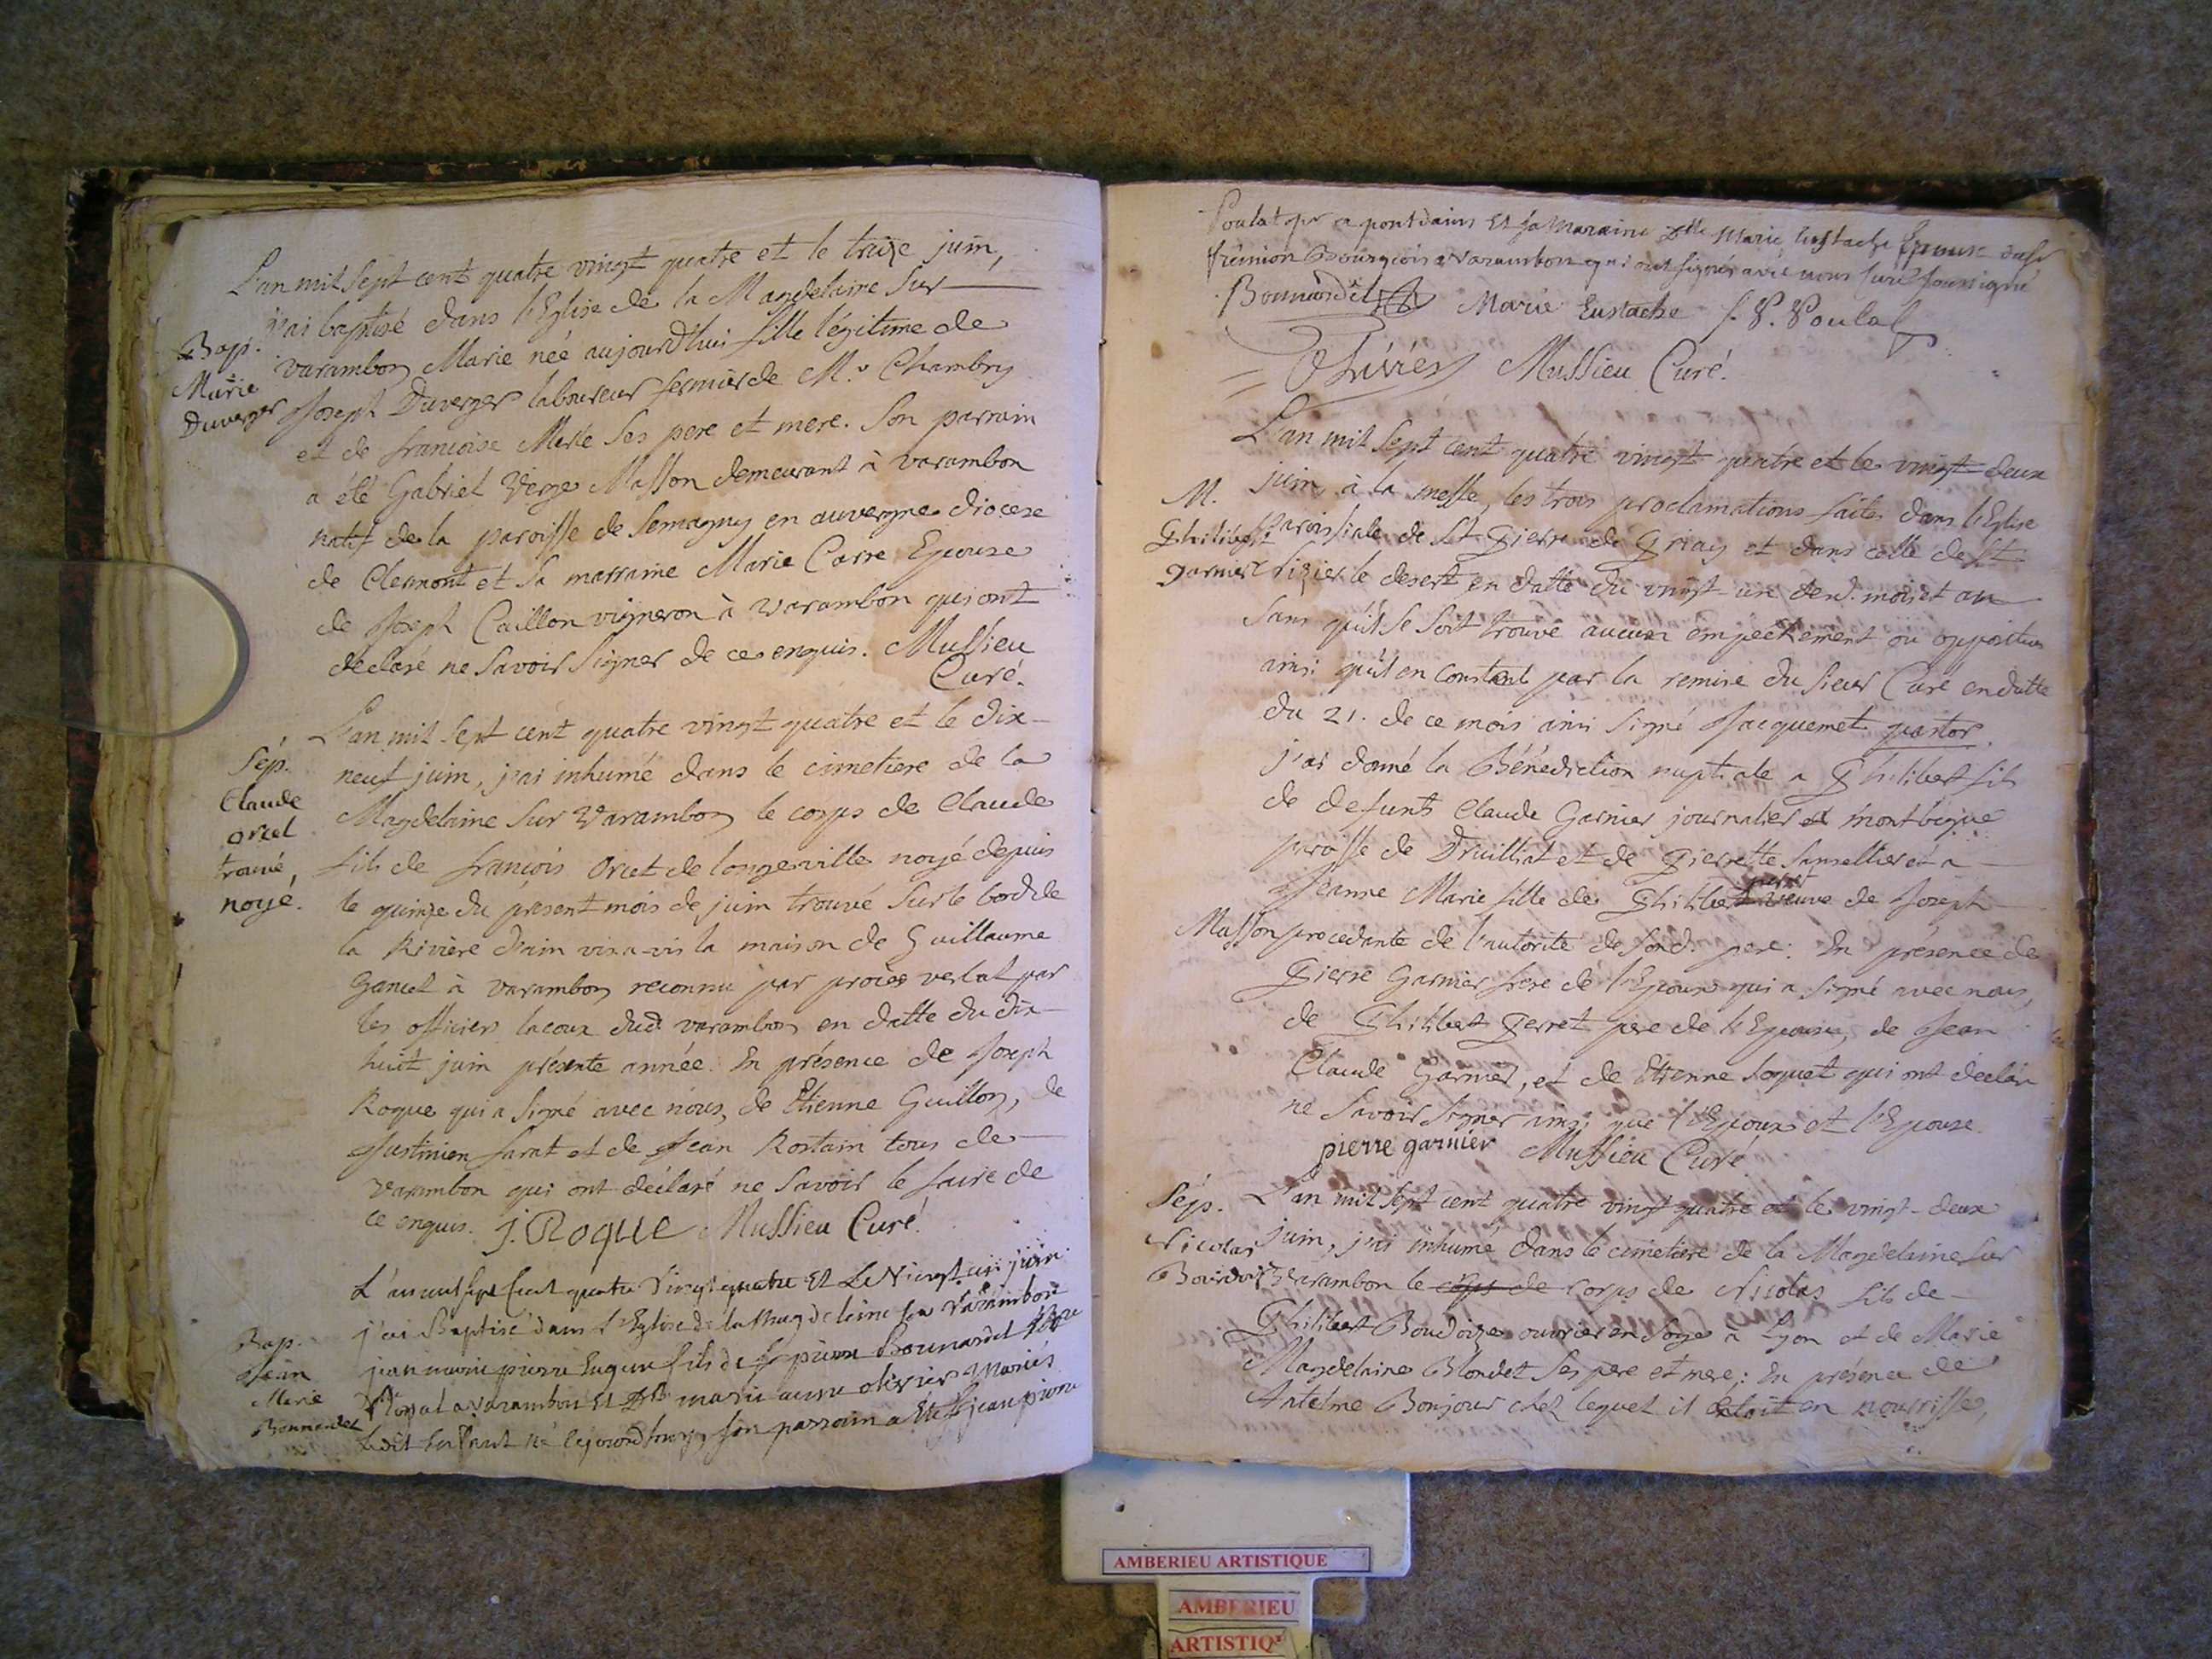 L'an mil sept cent quatre vingt quatre et le treize juin,
j'ai baptisé dans l'Eglise de la Magdelaine sur
Bap.
Marie
Duverger
varambon Marie née aujourd'hui fille légitime de
Joseph Duverger laboureur fermier de Mr. Chambry
et de francoise Merle ses pere et mere. Son parrain
a été Gabriel Verge Masson demeurant à varambon
natif de la paroisse de Semagny en auvergne diocese
de Clermont et sa marraine Marie Carre Epouse
de Joseph Caillon vigneron à varambon qui ont
declaré ne savoir signer de ce enquis. Mussieu
Curé.
L'an mil sept cent quatre vingt quatre et le dix-
Sép.
Claude
orcel
trouvé,
noyé.
neuf juin, j'ai inhumé dans le cimetiere de la
Magdelaine sur Varambon le corps de Claude
fils de françois Orcel de longeville noyé depuis
le quinze du présent mois de juin trouvé sur le bord de
la Riviere d'ain vis-a-vis la maison de Guillaume
Gancel à varambon reconnu par procès verbal par
les officiers dud varambon en datte du dix
huit juin présente année. En présence de Joseph
Roque qui a signé avec nous, de Etienne Guillon, de
Justinien farat et de Jean Rostain tous de
varambon qui ont déclaré ne savoir le faire de
ce enquis. J. ROQUE Mussieu Curé.
L'an mil sept Cent quatre Vingt quatre Et Le Vingt un juin
Bap.
Jean
Marie
Bonnardel
j'ai Baptisé dans l'Eglise de la Magdeleine sur Varambon
jean marie pierre Eugene fils de Sr pierre Bonnardel
Royal a varambon Et Dlle marie anne olivier mariés
Ledit Enfant né aujourd'huy, son parrain a Eté Sr jean pierre
Poulat a pontdains Et sa Maraine Dlle Marie Eustache Epouse de Sr
frémion Bourgeois a Varambon qui ont signés avec nous Curé soussigné
Bonnardel Marie Eustache J. P. Poulat
Olivier Mussieu Curé.
L'an mil sept cent quatre vingt quatre et le vingt-deux
M.
Philibert
garnier
juin, à la messe, les trois proclamations faites dans l'Eglise
paroissiale de St Pierre de Priay et dans celle de St
Nizier le desert en datte du vingt-un de ce d. mois et an
sans qu'il se soit trouvé aucun empêchement ou opposition
ainsi qu'il en constant par la remise du sieur Curé en datte
du 21. de ce mois ainsi signé Jacquemet pastor.
j'ai donné la Bénédiction nuptiale a Philibert fils
de defunt Claude Garnier journalier à montbègue
paroisse de Druillat et de Pierrette et a
Jeanne Marie fille de Philibert perret veuve de Joseph
Masson procedante de l'autorité de sond. pere: En présence de
Pierre Garnier frere de l'Epoux qui a signé avec nous,
de Philibert Perret pere de l'Epouse, de Jean
Claude Garnier, et de Etienne Soquet qui ont déclaré
ne savoir signer ainsi que l'Epoux et l'Epouse.
pierre garnier Mussieu Curé
Sép.
Nicolas
Boudoize
L'an mil sept cent quatre vingt quatre et le vingt-deux
juin, j'ai inhumé dans le cimetiere de la Magdelaine sur
Varambon le corps de corps de Nicolas fils de
Philibert Boudoize ouvrier en soye a Lyon et de Marie
Magdelaine Blondet ses pere et mere: En présence de
Antelme Bonjour chez lequel il étoit en nourrisse,
AMBERIEU ARTISTIQUE
AMBERIEU
ARTISTIQ